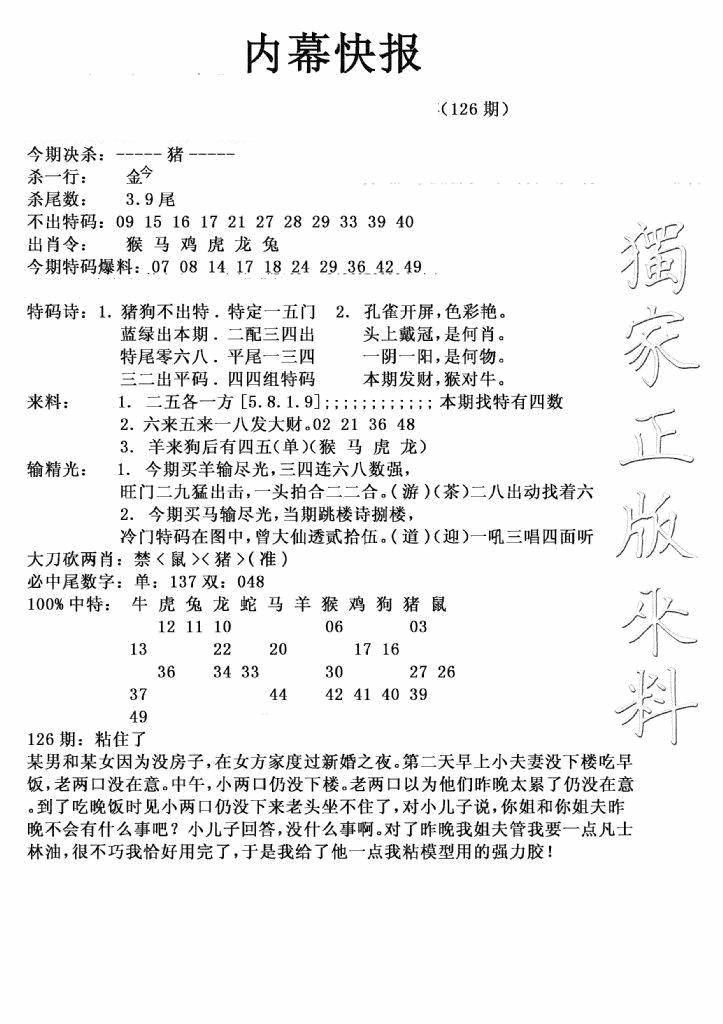 内幕快报
(126期)
今期决杀: ----- 猪 -----
杀一行: 金
杀尾数: 3.9尾
不出特码: 09 15 16 17 21 27 28 29 33 39 40
出肖令: 猴 马 鸡 虎 龙 兔
今期特码爆料: 07 08 14 17 18 24 29 36 42 49
特码诗: 1. 猪狗不出特. 特定一五门 2. 孔雀开屏,色彩艳。
蓝绿出本期. 二配三四出 头上戴冠,是何肖。
特尾零六八. 平尾一三四 一阴一阳,是何物。
三二出平码. 四四组特码 本期发财,猴对牛。
来料: 1. 二五各一方[5.8.1.9];;;;;;;;;;;; 本期找特有四数
2. 六来五来一八发大财。02 21 36 48
3. 羊来狗后有四五(单)(猴 马 虎 龙)
输精光: 1. 今期买羊输尽光,三四连六八数强,
旺门二九猛出击,一头拍合二二合。(游)(茶)二八出动找着六
2. 今期买马输尽光,当期跳楼诗捌楼,
冷门特码在图中,曾大仙透贰拾伍。(道)(迎)一吼三唱四面听
大刀砍两肖: 禁<鼠><猪>(准)
必中尾数字: 单: 137 双: 048
100%中特: 牛 虎 兔 龙 蛇 马 羊 猴 鸡 狗 猪 鼠
12 11 10 06 03
13 22 20 17 16
36 34 33 30 27 26
37 44 42 41 40 39
49
126期: 粘住了
某男和某女因为没房子,在女方家度过新婚之夜。第二天早上小夫妻没下楼吃早
饭,老两口没在意。中午,小两口仍没下楼。老两口以为他们昨晚太累了仍没在意
。到了吃晚饭时见小两口仍没下来老头坐不住了,对小儿子说,你姐和你姐夫昨
晚不会有什么事吧? 小儿子回答,没什么事啊。对了昨晚我姐夫管我要一点凡士
林油,很不巧我恰好用完了,于是我给了他一点我粘模型用的强力胶!
獨家正版來料